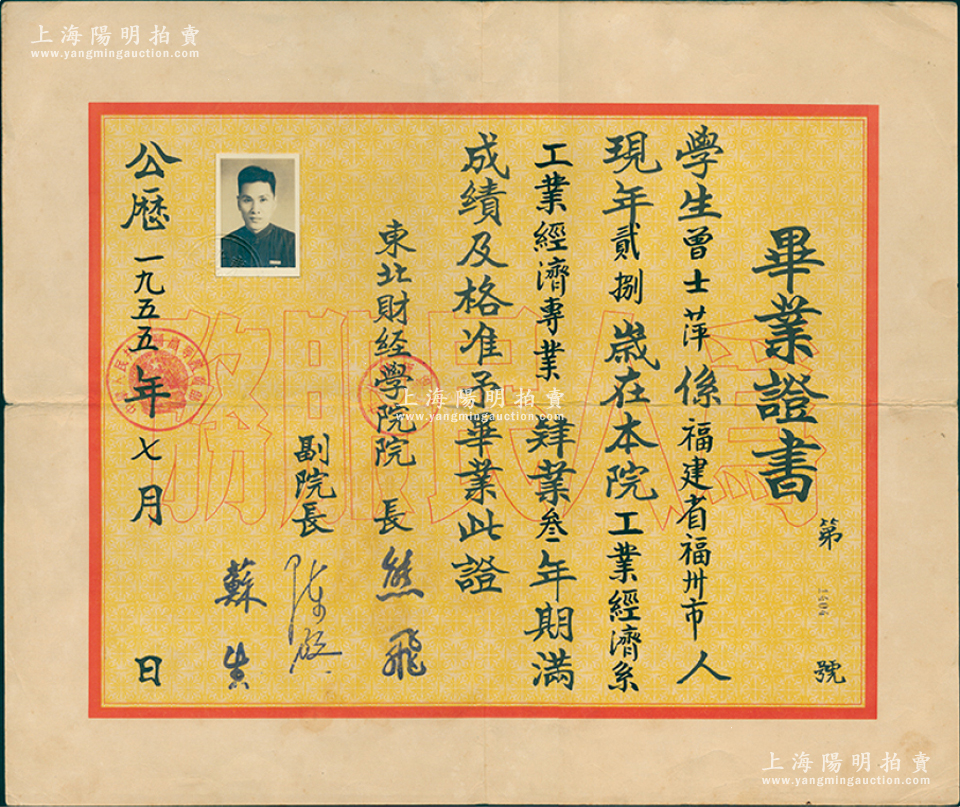 上海陽明拍賣
www.yangmingauction.com
畢業證書
第 1404 號
學生曾士萍係福建省福州市人
現年貳捌歲在本院工業經濟系
工業經濟專業肄業叁年期滿
成績及格准予畢業此證
東北財经學院院長熊飛
副院長
蘇生
公曆一九五五年七月 日
為人民服務
上海陽明拍賣
www.yangmingauction.com
上海陽明拍賣
www.yangmingauction.com